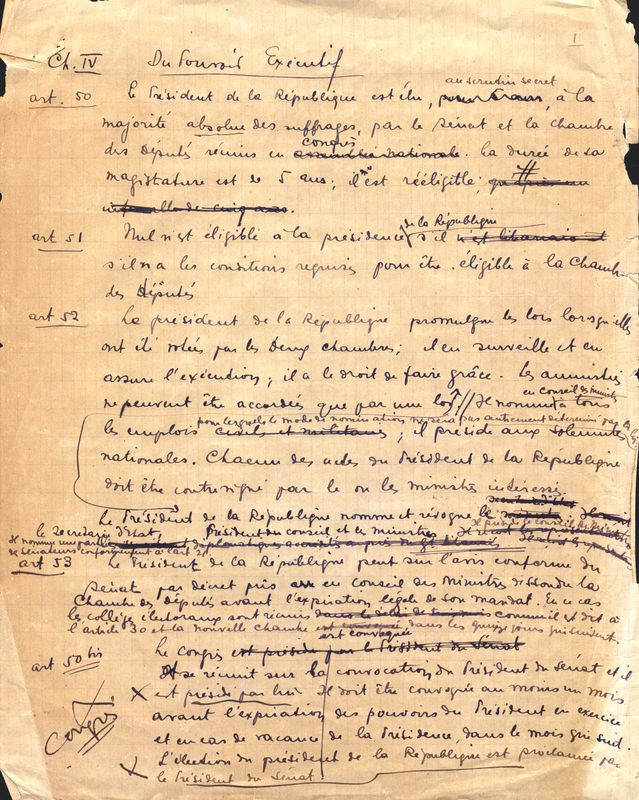 1
Ch. IV Du Pouvoir Exécutif
au scrutin secret
art. 50 Le Président de la République est élu, à la
majorité absolue des suffrages, par le Sénat et la Chambre
congrès
des Députés réunis en assemblée nationale. La durée de sa
magistature est de 5 ans; il n'est rééligible
intervalle de cinq ans.
de la République
art 51 Nul n'est éligible à la présidence s'il n'est libanais et
s'il n'a les conditions requises pour être éligible à la Chambre
des Députés
art 52 Le président de la République promulgue les lois lorsqu'elles
ont été votées par les Deux chambres; il en surveille et en
assure l'exécution; il a le droit de faire grâce. Les amnisties
en conseil des ministres
ne peuvent être accordées que par une loi // Il nomme à tous
pour lesquels le mode de nomination ne sera pas autrement déterminé par la loi
les emplois civils et militaires; il préside aux solennités
nationales. Chacun des actes du Président de la République
doit être contresigné par le ou les ministres intéressés
Le Président de la République nomme et révoque le
le secrétaire d'état, Président du conseil et les ministres
Il nomme une partie
de Sénateurs conformément à l'art 21
art 53 Le Président de la République peut sur l'avis conforme du
Sénat par décret pris en conseil des Ministres dissoudre la
Chambre des Députés avant l'expiration légale de son mandat. En ce cas
les collèges électoraux sont réunis comme il est dit à
l'article 30 et la nouvelle Chambre est convoquée dans les quinze jours qui suivent
est convoquée
art 50 bis Le Congrès est présidé par le Président du Sénat
se réunit sur la convocation du Président du Sénat et il
X est présidé par lui Il doit être convoqué au moins un mois
Congrès
avant l'expiration des pouvoirs du Président en exercice
et en cas de vacance de la Présidence, dans le mois qui suit.
X L'élection du président de la République est proclamée par
le Président du Sénat